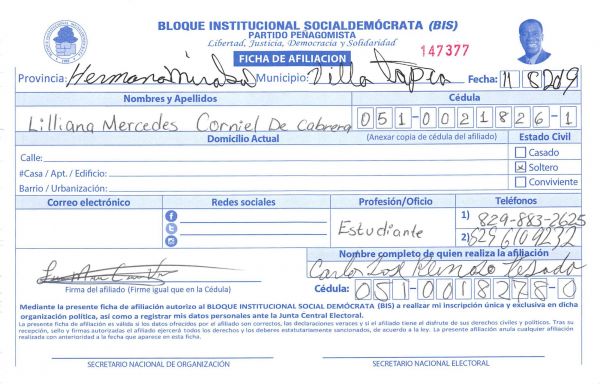 BLOQUE INSTITUCIONAL SOCIALDEMÓCRATA (BIS)
PARTIDO PEÑAGOMISTA
Libertad, Justicia, Democracia y Solidaridad
FICHA DE AFILIACION
147377
Provincia: Hermana Mirabal Municipio: Villa Tapia Fecha: 11 8 2019
Nombres y Apellidos Cédula
Lilliana Mercedes Corniel De Cabrera 051-0021826-1
Domicilio Actual (Anexar copia de cédula del afiliado) Estado Civil
Calle: Casado
#Casa / Apt. / Edificio: X Soltero
Barrio / Urbanización: Conviviente
Correo electrónico Redes sociales Profesión/Oficio Teléfonos
Estudiante 1) 829-883-2625
2) 829 610 9232
Nombre completo de quien realiza la afiliación
Carlos José
Firma del afiliado (Firme igual que en la Cédula) Cédula: 051-0018278-0
Mediante la presente ficha de afiliación autorizo al BLOQUE INSTITUCIONAL SOCIAL DEMÓCRATA (BIS) a realizar mi inscripción única y exclusiva en dicha
organización política, así como a registrar mis datos personales ante la Junta Central Electoral.
La presente ficha de afiliación es válida si los datos ofrecidos por el afiliado son correctos, las declaraciones veraces y si el afiliado tiene el disfrute de sus derechos civiles y políticos. Tras su
recepción, sello y firmas autorizadas el afiliado ejercerá todos los derechos y los deberes estatutariamente sancionados, de acuerdo a la ley. La presente afiliación anula cualquier afiliación
realizada con anterioridad a la fecha que aparece en esta ficha.
SECRETARIO NACIONAL DE ORGANIZACIÓN SECRETARIO NACIONAL ELECTORAL